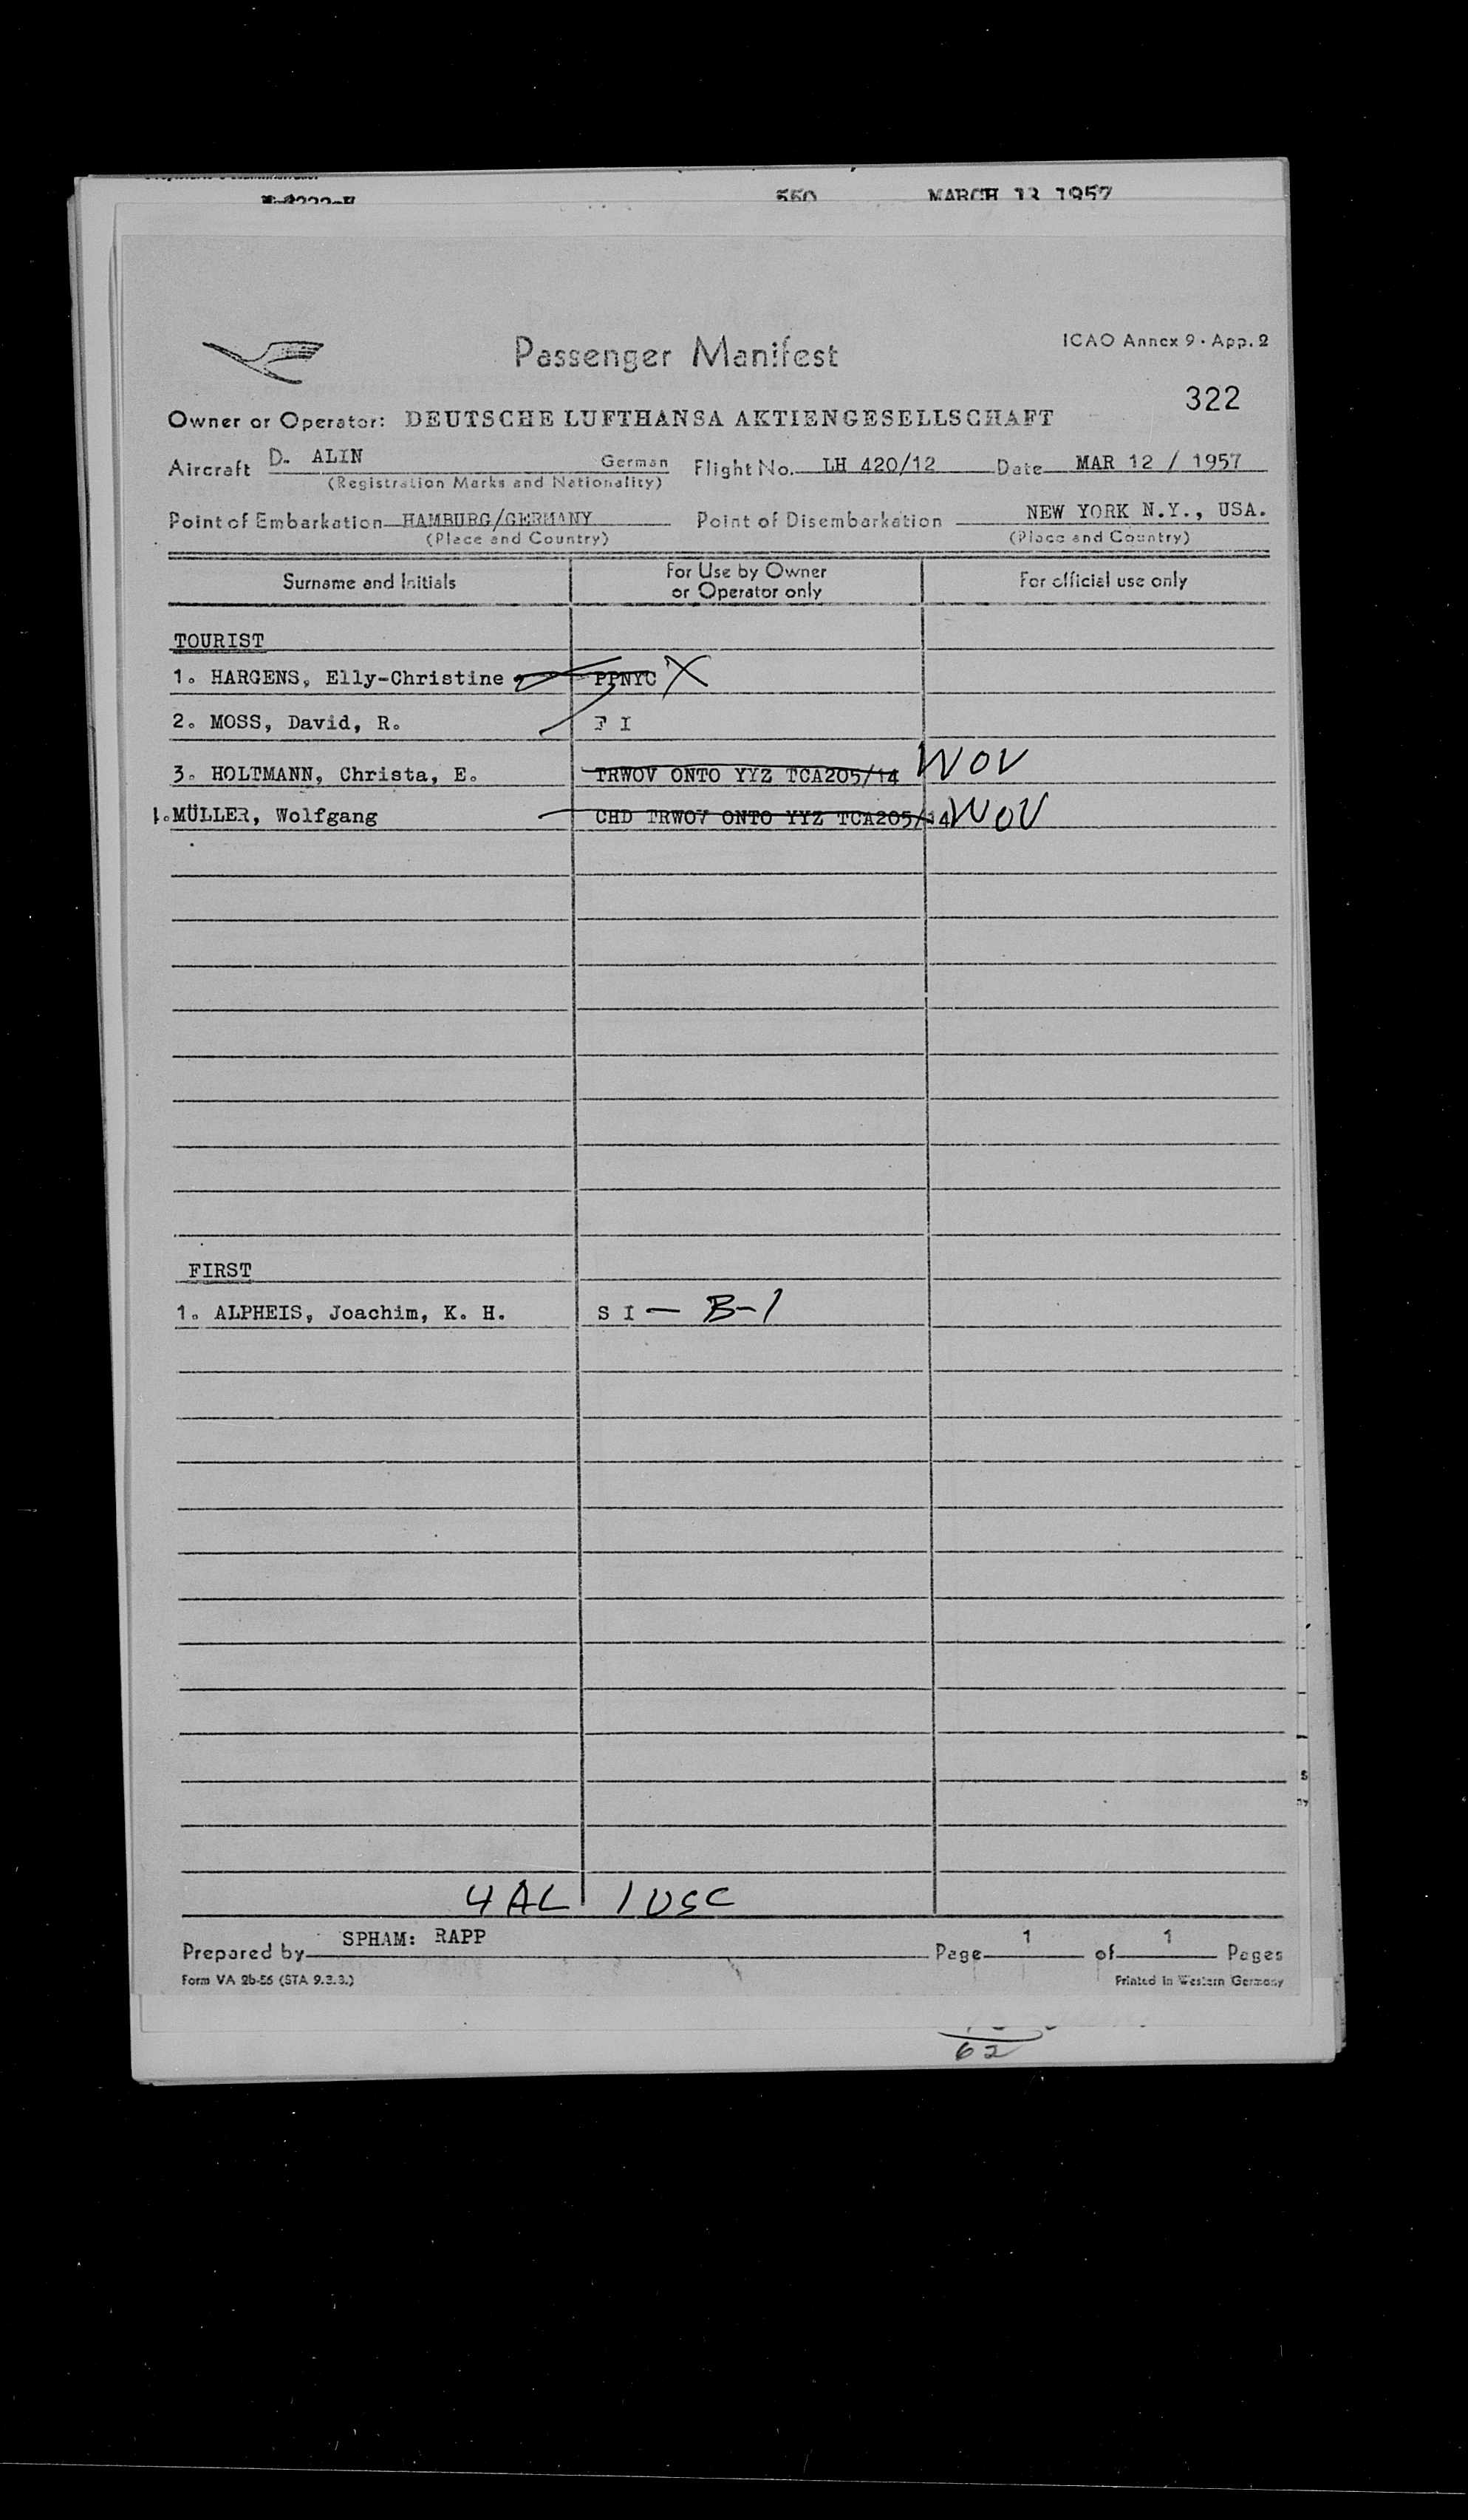 550 MARCH 13 1957
Passenger Manifest
ICAO Annex 9 · App. 2
322
Owner or Operator: DEUTSCHE LUFTHANSA AKTIENGESELLSCHAFT
Aircraft D. ALIN German Flight No. LH 420/12 Date MAR 12 / 1957
(Registration Marks and Nationality)
Point of Embarkation HAMBURG/GERMANY Point of Disembarkation NEW YORK N.Y., USA.
(Place and Country) (Place and Country)
Surname and Initials For Use by Owner or Operator only For official use only
TOURIST
1. HARGENS, Elly-Christine PPNYC X
2. MOSS, David, R. F I
3. HOLTMANN, Christa, E. TRWOV ONTO YYZ TCA205/14 WOV
1.MÜLLER, Wolfgang CHD TRWOV ONTO YYZ TCA205/14 WOV
FIRST
1. ALPHEIS, Joachim, K. H. S I — B-1
4 AL 1 USC
Prepared by SPHAM: RAPP Page 1 of 1 Pages
Form VA 2b-56 (STA 9.3.3.) Printed in Western Germany
62